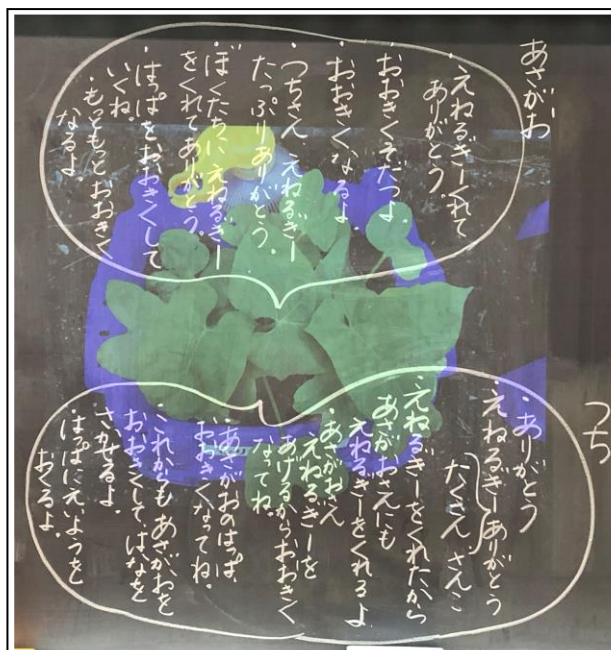 あさがお
・えねるぎーくれて
ありがとう。
おおきくそだつよ。
・おおきくなるよ。
・つちさん、えねるぎー
たっぷりありがとう。
・ぼくたちに えねるぎー
をくれてありがとう。
・はっぱをおおきくして
いくね。
・もっともっとおおきく
なるよ。
つち
・ありがとう
・えねるぎーありがとう
たくさん さんこ
・えねるぎーをくれたから
あさがおさんにも
えねるぎーをくれるよ
・あさがおさん
えねるぎーを
あげるからおおきく
なってね。
・あさがおのはっぱ、
おおきくなってね。
・これからも あさがおを
おおきくして、はなを
さかせるよ。
・はっぱにえいようを
おくるよ。